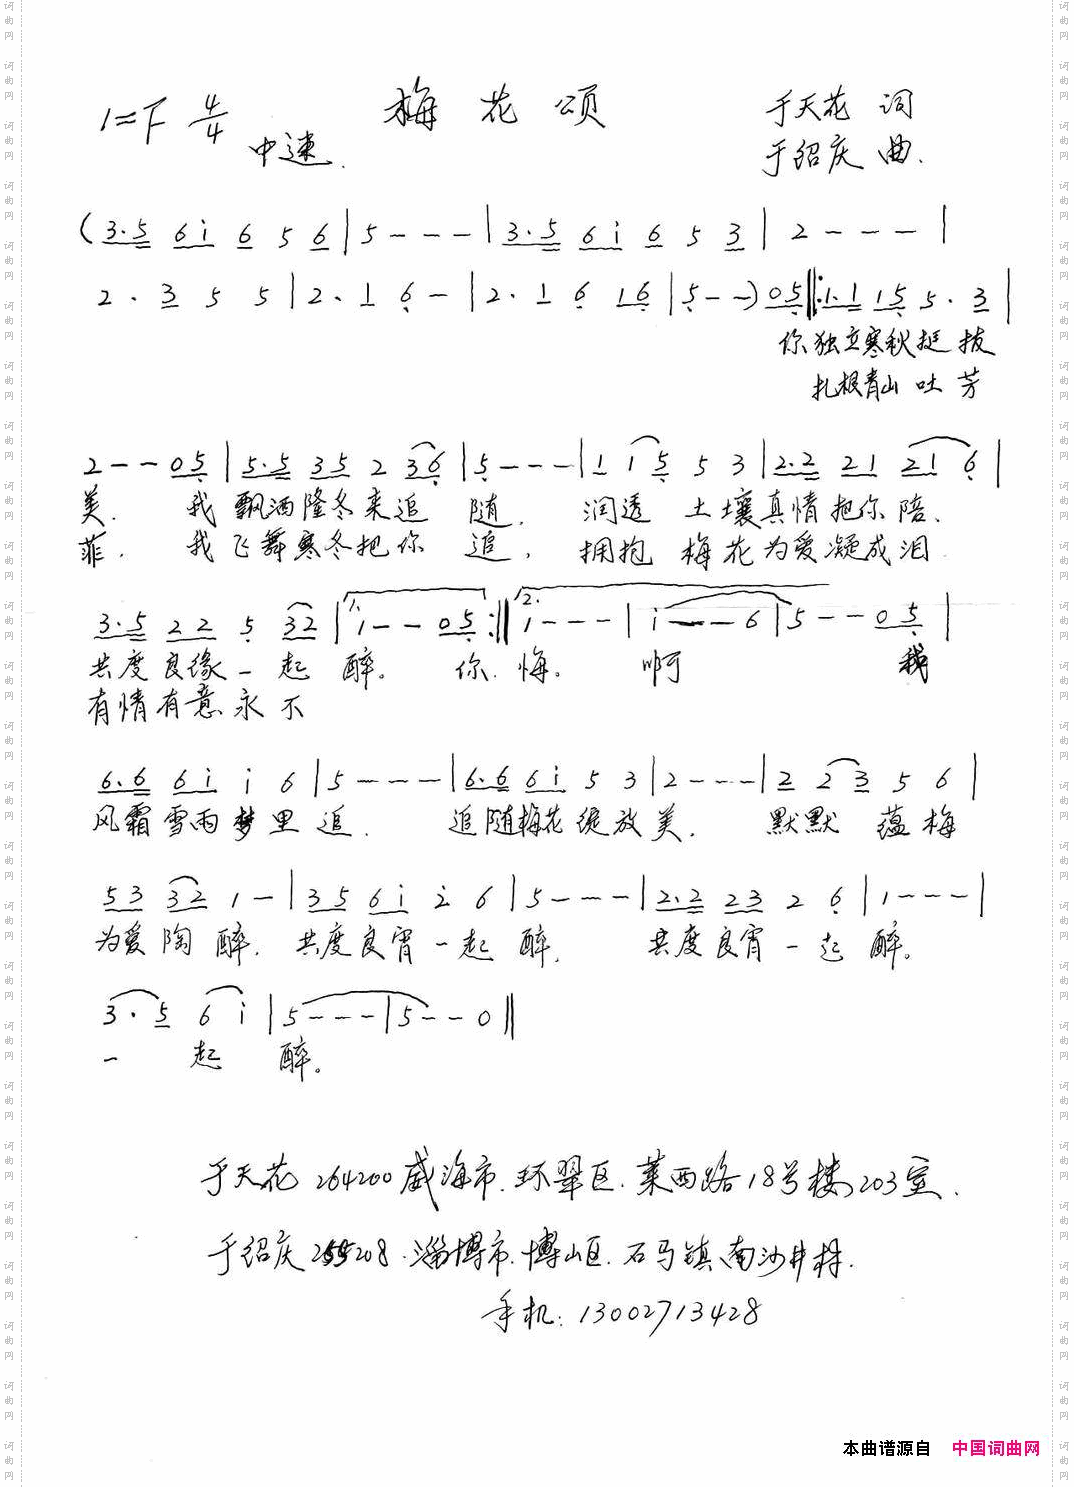 梅花颂
1=F 4/4
中速.
于天花 词
于绍庆 曲.
(3·5 6i 6 5 6|5---|3·5 6i 6 5 3|2---|
2·3 5 5|2·1 6-|2·1 6 16|5--)05‖:1·1 15 5·3|
你独立寒秋挺拔
扎根青山吐芳
2--05|5·5 35 2 36|5---|1 15 5 3|2·2 21 21 6|
美. 我飘洒隆冬来追随. 润透土壤真情把你陪、
菲. 我飞舞寒冬把你追, 拥抱梅花为爱凝成泪.
3·5 22 5 32|1.1--05:‖2.1---|i--6|5--05|
共度良缘一起醉。 你. 悔。 啊 我
有情有意永不
6·6 6i i 6|5---|6·6 6i 5 3|2---|2 23 5 6|
风霜雪雨梦里追. 追随梅花绽放美. 默默蕴梅
53 32 1-|35 6i 2 6|5---|2·2 23 2 6|1---|
为爱陶醉. 共度良宵一起醉. 共度良宵一起醉。
3·5 6 i|5---|5--0‖
一起醉。
于天花 264200威海市.环翠区.莱西路18号楼203室.
于绍庆 255208.淄博市.博山区.石马镇.南沙井村.
手机:13002713428
本曲谱源自 中国词曲网